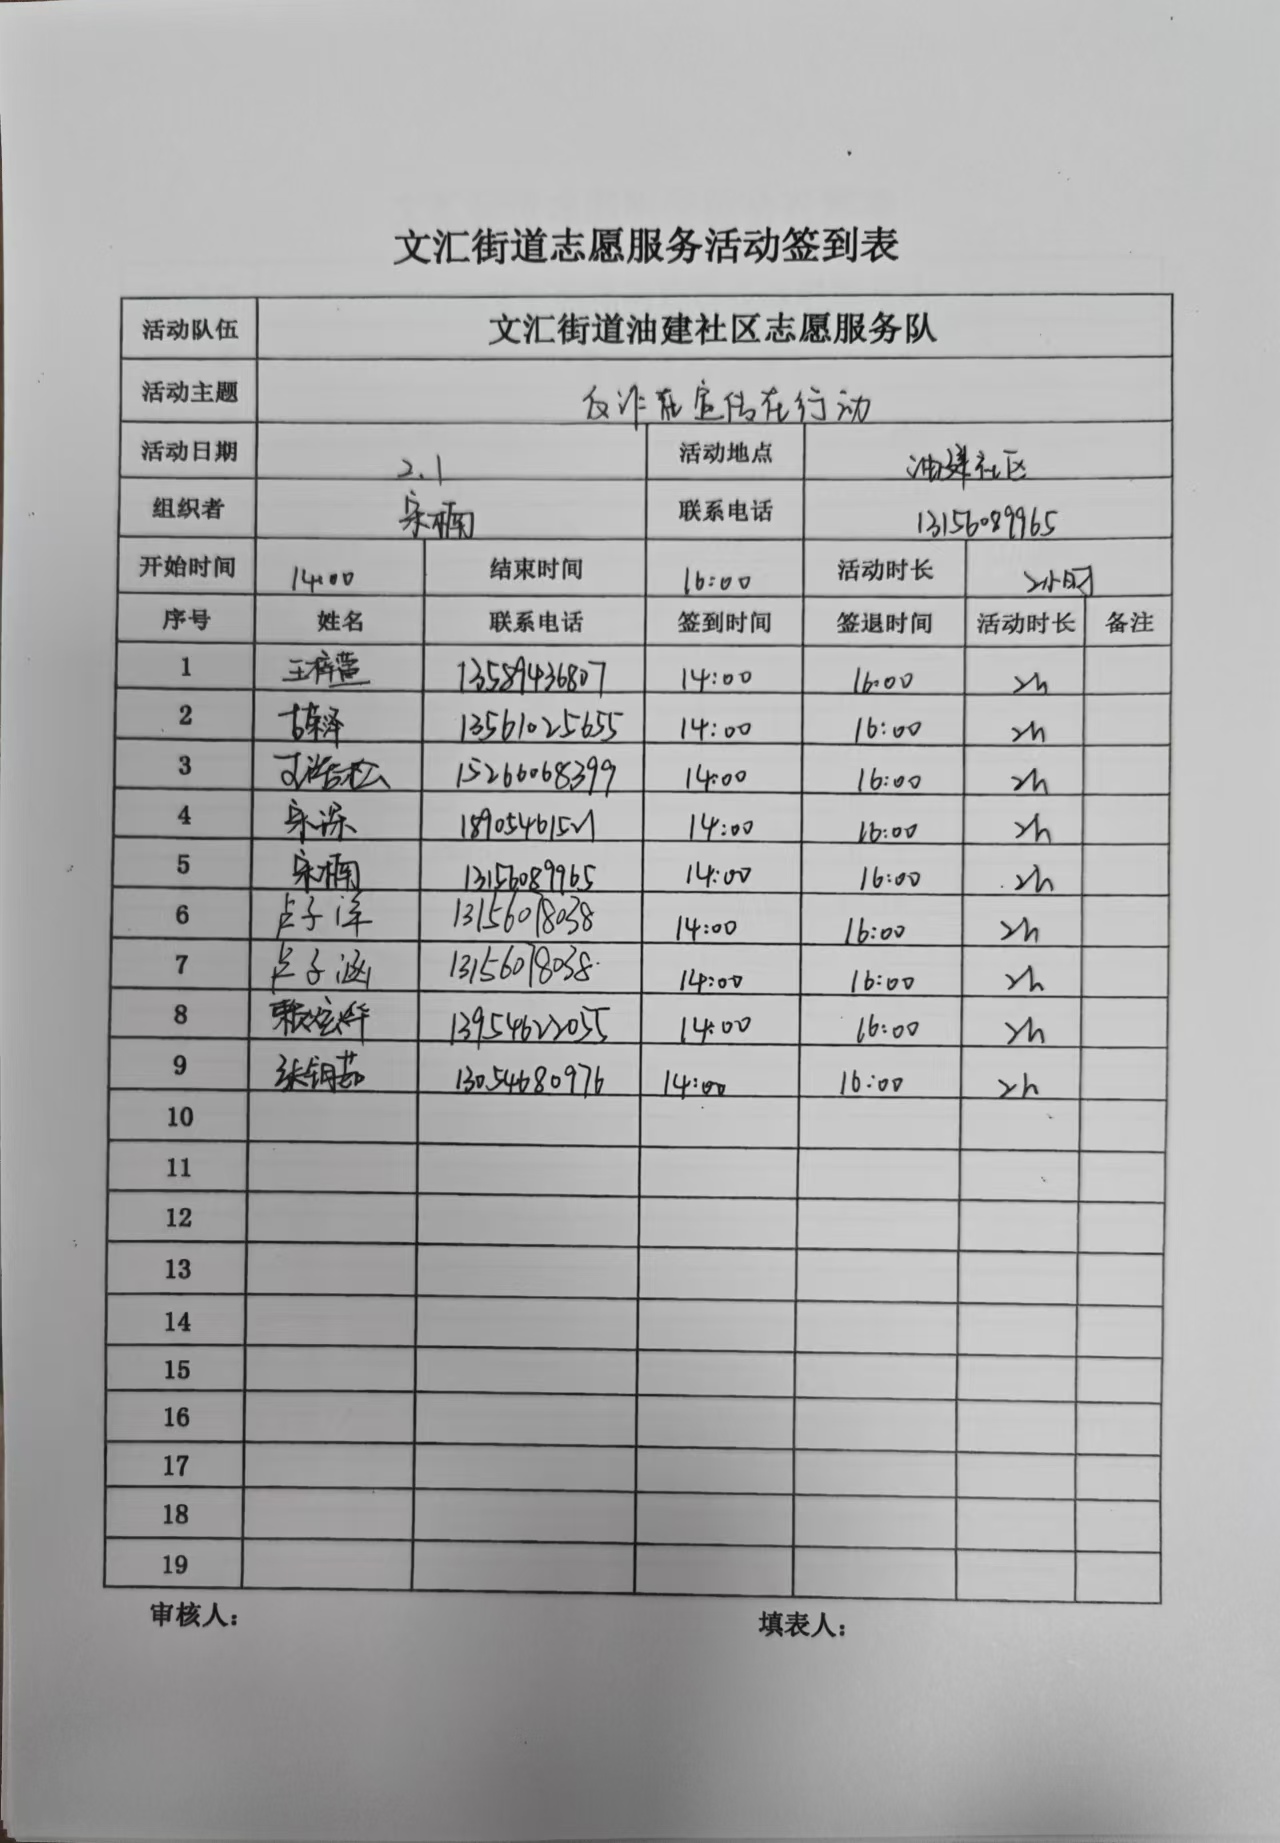 文汇街道志愿服务活动签到表
活动队伍 文汇街道油建社区志愿服务队
活动主题 反诈宣传在行动
活动日期 2.1 活动地点 油建社区
组织者 宋楠 联系电话 13156089965
开始时间 14:00 结束时间 16:00 活动时长 2小时
序号 姓名 联系电话 签到时间 签退时间 活动时长 备注
1 王梓萱 13589436807 14:00 16:00 2h
2 13561025655 14:00 16:00 2h
3 15266068399 14:00 16:00 2h
4 宋深 14:00 16:00 2h
5 宋楠 13156089965 14:00 16:00 2h
6 卢子洋 13156078038 14:00 16:00 2h
7 卢子涵 13156078038 14:00 16:00 2h
8 13954622055 14:00 16:00 2h
9 13054680976 14:00 16:00 2h
10
11
12
13
14
15
16
17
18
19
审核人: 填表人: